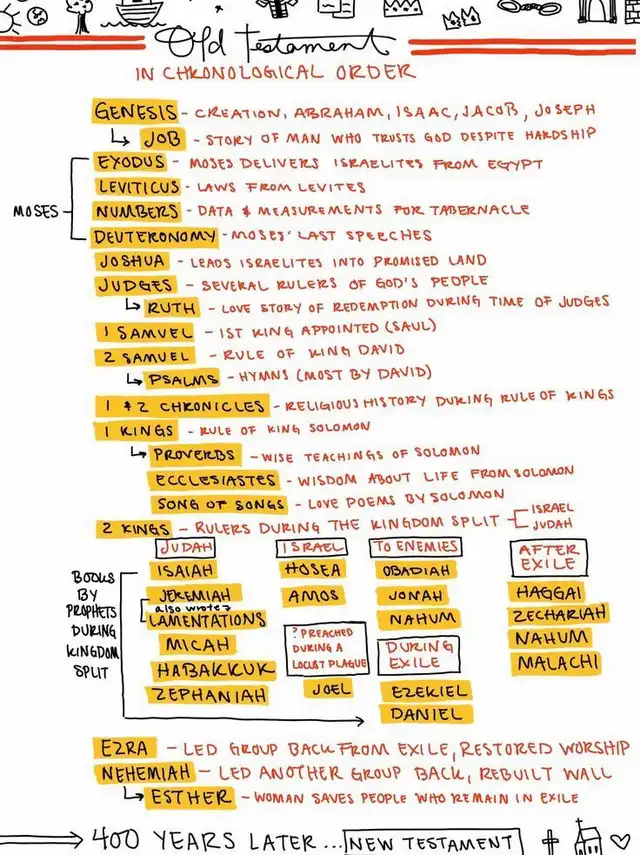 Old Testament
IN CHRONOLOGICAL ORDER
GENESIS - CREATION, ABRAHAM, ISAAC, JACOB, JOSEPH
JOB - STORY OF MAN WHO TRUSTS GOD DESPITE HARDSHIP
MOSES
EXODUS - MOSES DELIVERS ISRAELITES FROM EGYPT
LEVITICUS - LAWS FROM LEVITES
NUMBERS - DATA & MEASUREMENTS FOR TABERNACLE
DEUTERONOMY - MOSES' LAST SPEECHES
JOSHUA - LEADS ISRAELITES INTO PROMISED LAND
JUDGES - SEVERAL RULERS OF GOD'S PEOPLE
RUTH - LOVE STORY OF REDEMPTION DURING TIME OF JUDGES
1 SAMUEL - 1ST KING APPOINTED (SAUL)
2 SAMUEL - RULE OF KING DAVID
PSALMS - HYMNS (MOST BY DAVID)
1 & 2 CHRONICLES - RELIGIOUS HISTORY DURING RULE OF KINGS
1 KINGS - RULE OF KING SOLOMON
PROVERBS - WISE TEACHINGS OF SOLOMON
ECCLESIASTES - WISDOM ABOUT LIFE FROM SOLOMON
SONG OF SONGS - LOVE POEMS BY SOLOMON
2 KINGS - RULERS DURING THE KINGDOM SPLIT
ISRAEL
JUDAH
BOOKS
BY
PROPHETS
DURING
KINGDOM
SPLIT
JUDAH
ISAIAH
JEREMIAH
also wrote
LAMENTATIONS
MICAH
HABAKKUK
ZEPHANIAH
ISRAEL
HOSEA
AMOS
? PREACHED
DURING A
LOCUST PLAGUE
JOEL
TO ENEMIES
OBADIAH
JONAH
NAHUM
DURING
EXILE
EZEKIEL
DANIEL
AFTER
EXILE
HAGGAI
ZECHARIAH
NAHUM
MALACHI
EZRA - LED GROUP BACK FROM EXILE, RESTORED WORSHIP
NEHEMIAH - LED ANOTHER GROUP BACK, REBUILT WALL
ESTHER - WOMAN SAVES PEOPLE WHO REMAIN IN EXILE
400 YEARS LATER... NEW TESTAMENT